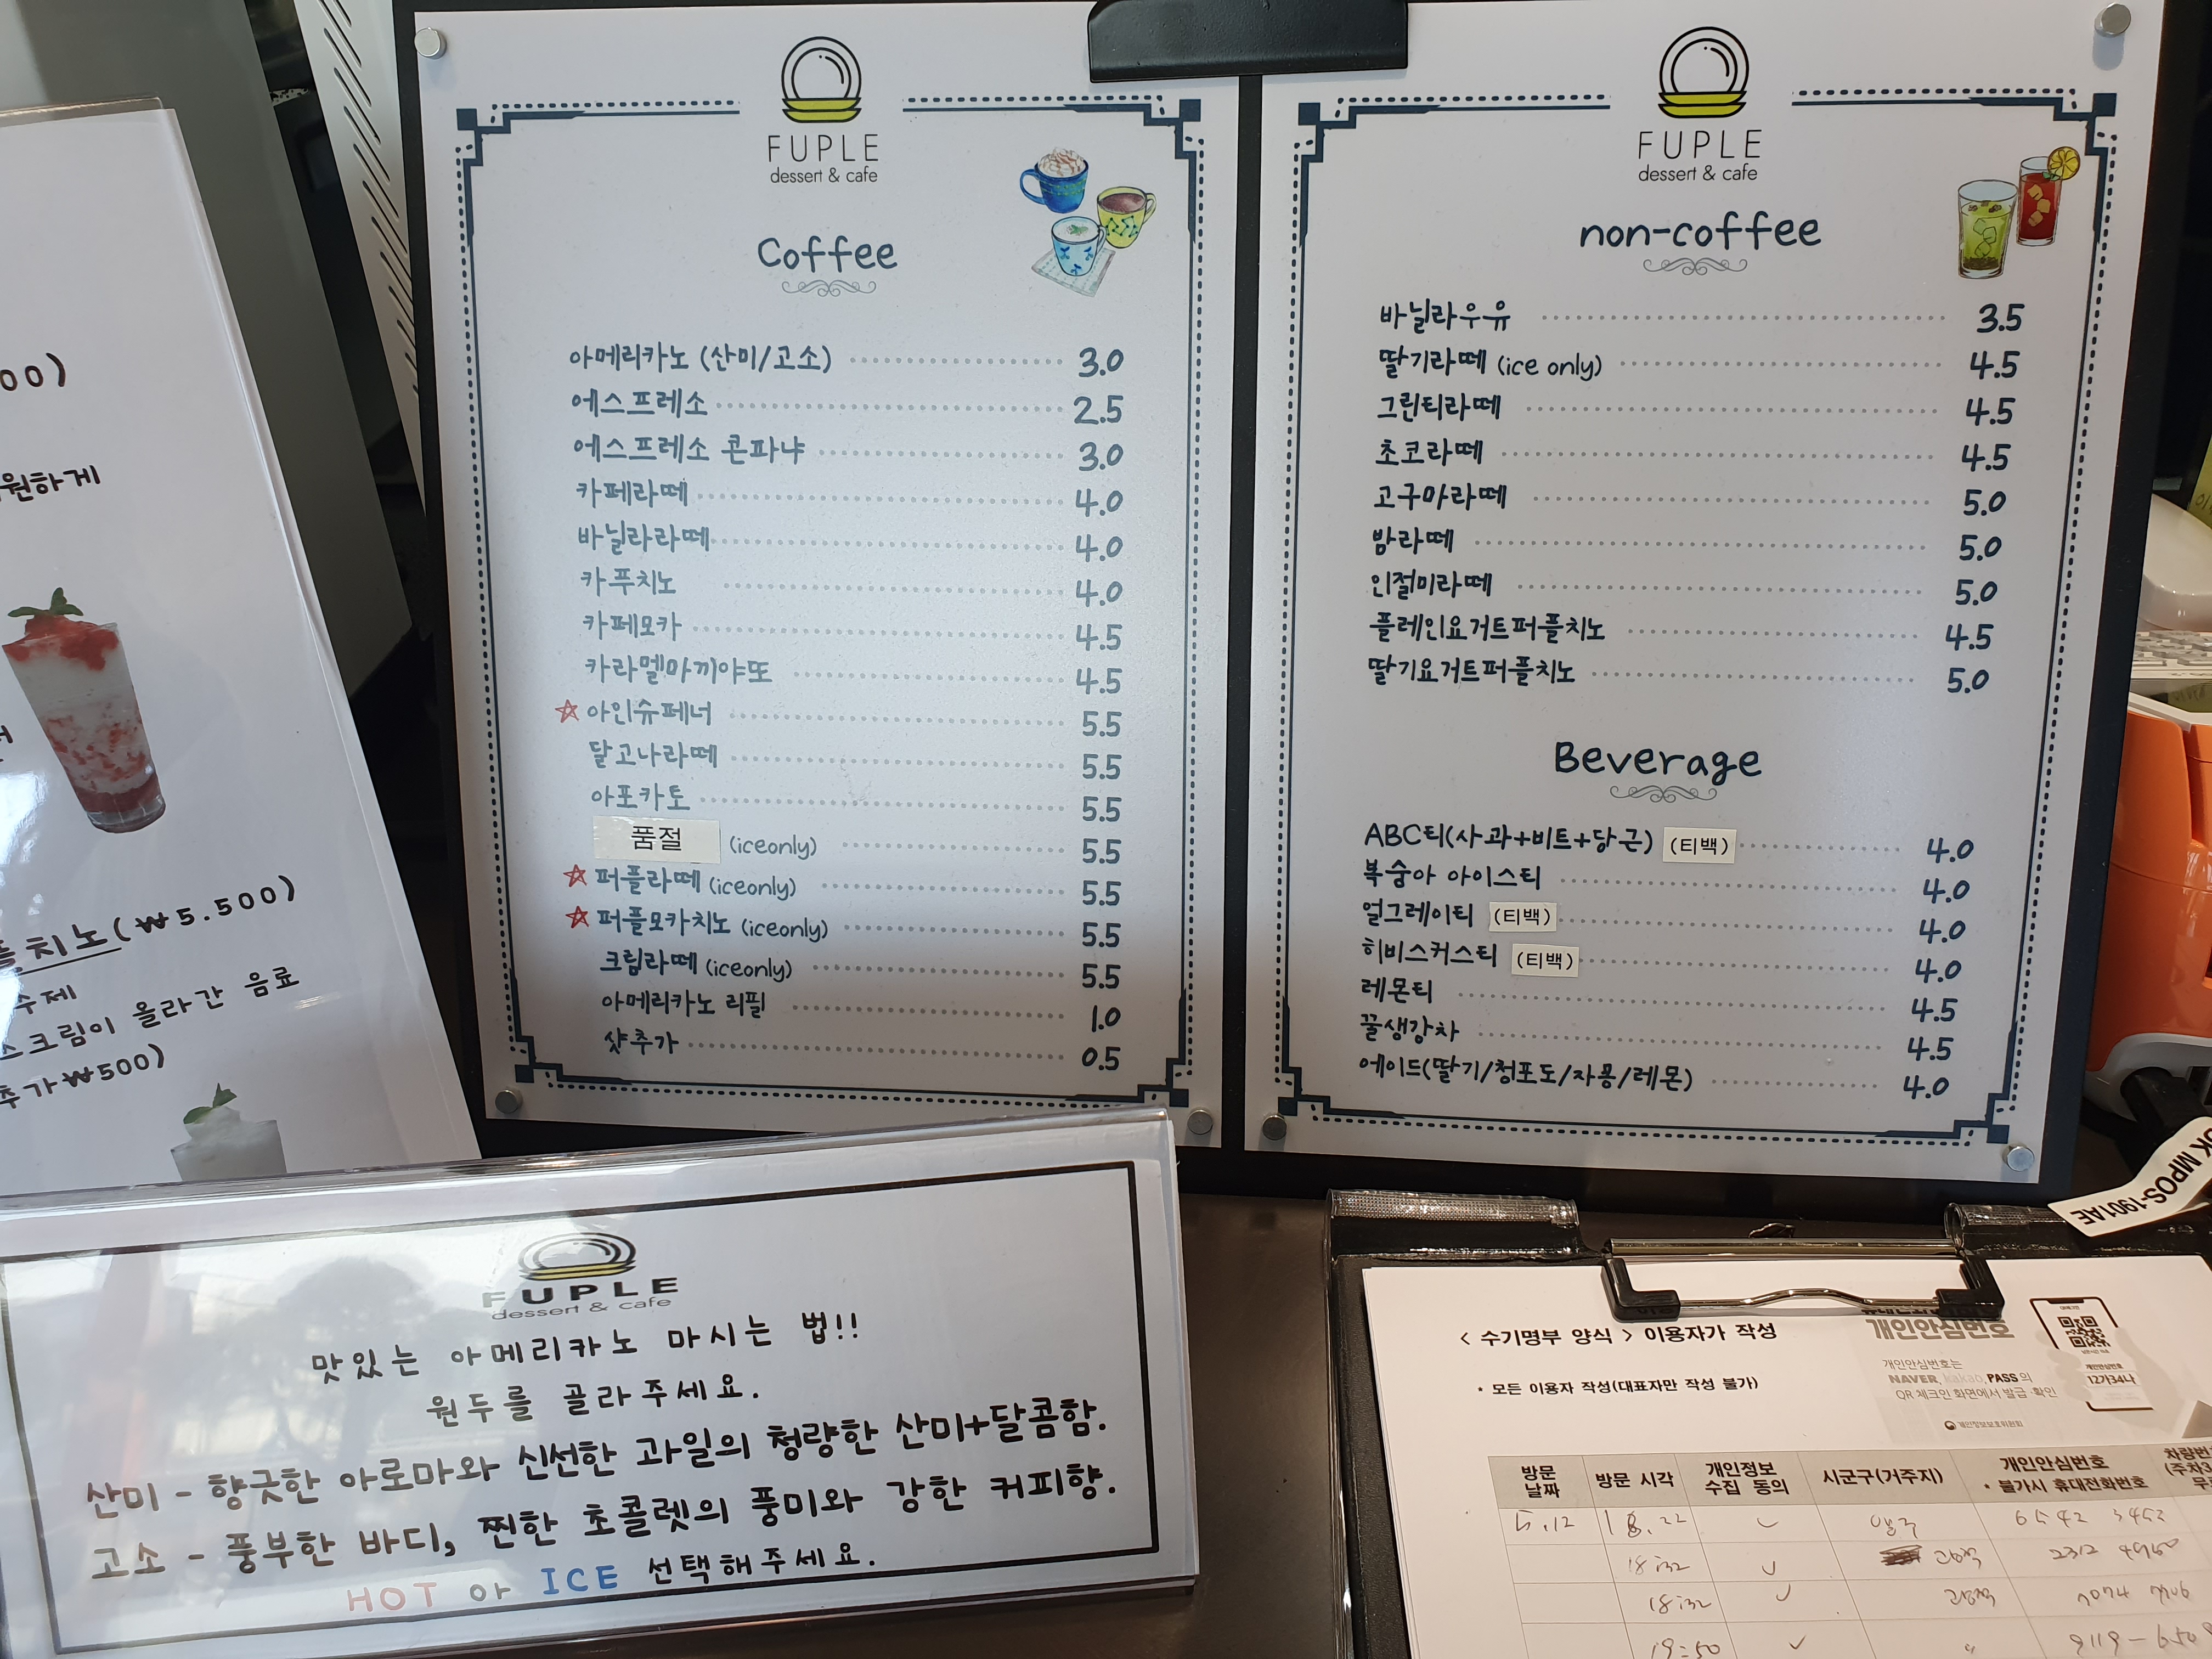 00)
원하게
플치노(₩5.500)
수제
스크림이 올라간 음료
추가₩500)
FUPLE
dessert & cafe
Coffee
아메리카노 (산미/고소) 3.0
에스프레소 2.5
에스프레소 콘파냐 3.0
카페라떼 4.0
바닐라라떼 4.0
카푸치노 4.0
카페모카 4.5
카라멜마끼야또 4.5
☆ 아인슈페너 5.5
달고나라떼 5.5
아포카토 5.5
품절 (iceonly) 5.5
☆ 퍼플라떼 (iceonly) 5.5
☆ 퍼플모카치노 (iceonly) 5.5
크림라떼 (iceonly) 5.5
아메리카노 리필 1.0
샷추가 0.5
FUPLE
dessert & cafe
non-coffee
바닐라우유 3.5
딸기라떼 (ice only) 4.5
그린티라떼 4.5
초코라떼 4.5
고구마라떼 5.0
밤라떼 5.0
인절미라떼 5.0
플레인요거트퍼플치노 4.5
딸기요거트퍼플치노 5.0
Beverage
ABC티(사과+비트+당근) (티백) 4.0
복숭아 아이스티 4.0
얼그레이티 (티백) 4.0
히비스커스티 (티백) 4.0
레몬티 4.5
꿀생강차 4.5
에이드(딸기/청포도/자몽/레몬) 4.0
FUPLE
dessert & cafe
맛있는 아메리카노 마시는 법!!
원두를 골라주세요.
산미 - 향긋한 아로마와 신선한 과일의 청량한 산미+달콤함.
고소 - 풍부한 바디, 찐한 초콜렛의 풍미와 강한 커피향.
HOT or ICE 선택해주세요.
OK MPOS-1901AE
< 수기명부 양식 > 이용자가 작성
* 모든 이용자 작성(대표자만 작성 불가)
개인안심번호
개인안심번호는
NAVER, kakao, PASS의
QR 체크인 화면에서 발급·확인
개인정보보호위원회
개인안심번호
12가34나
방문 날짜 방문 시각 개인정보 수집 동의 시군구(거주지) 개인안심번호 * 불가시 휴대전화번호
5.12 18.22
18:32
18:32
19:50